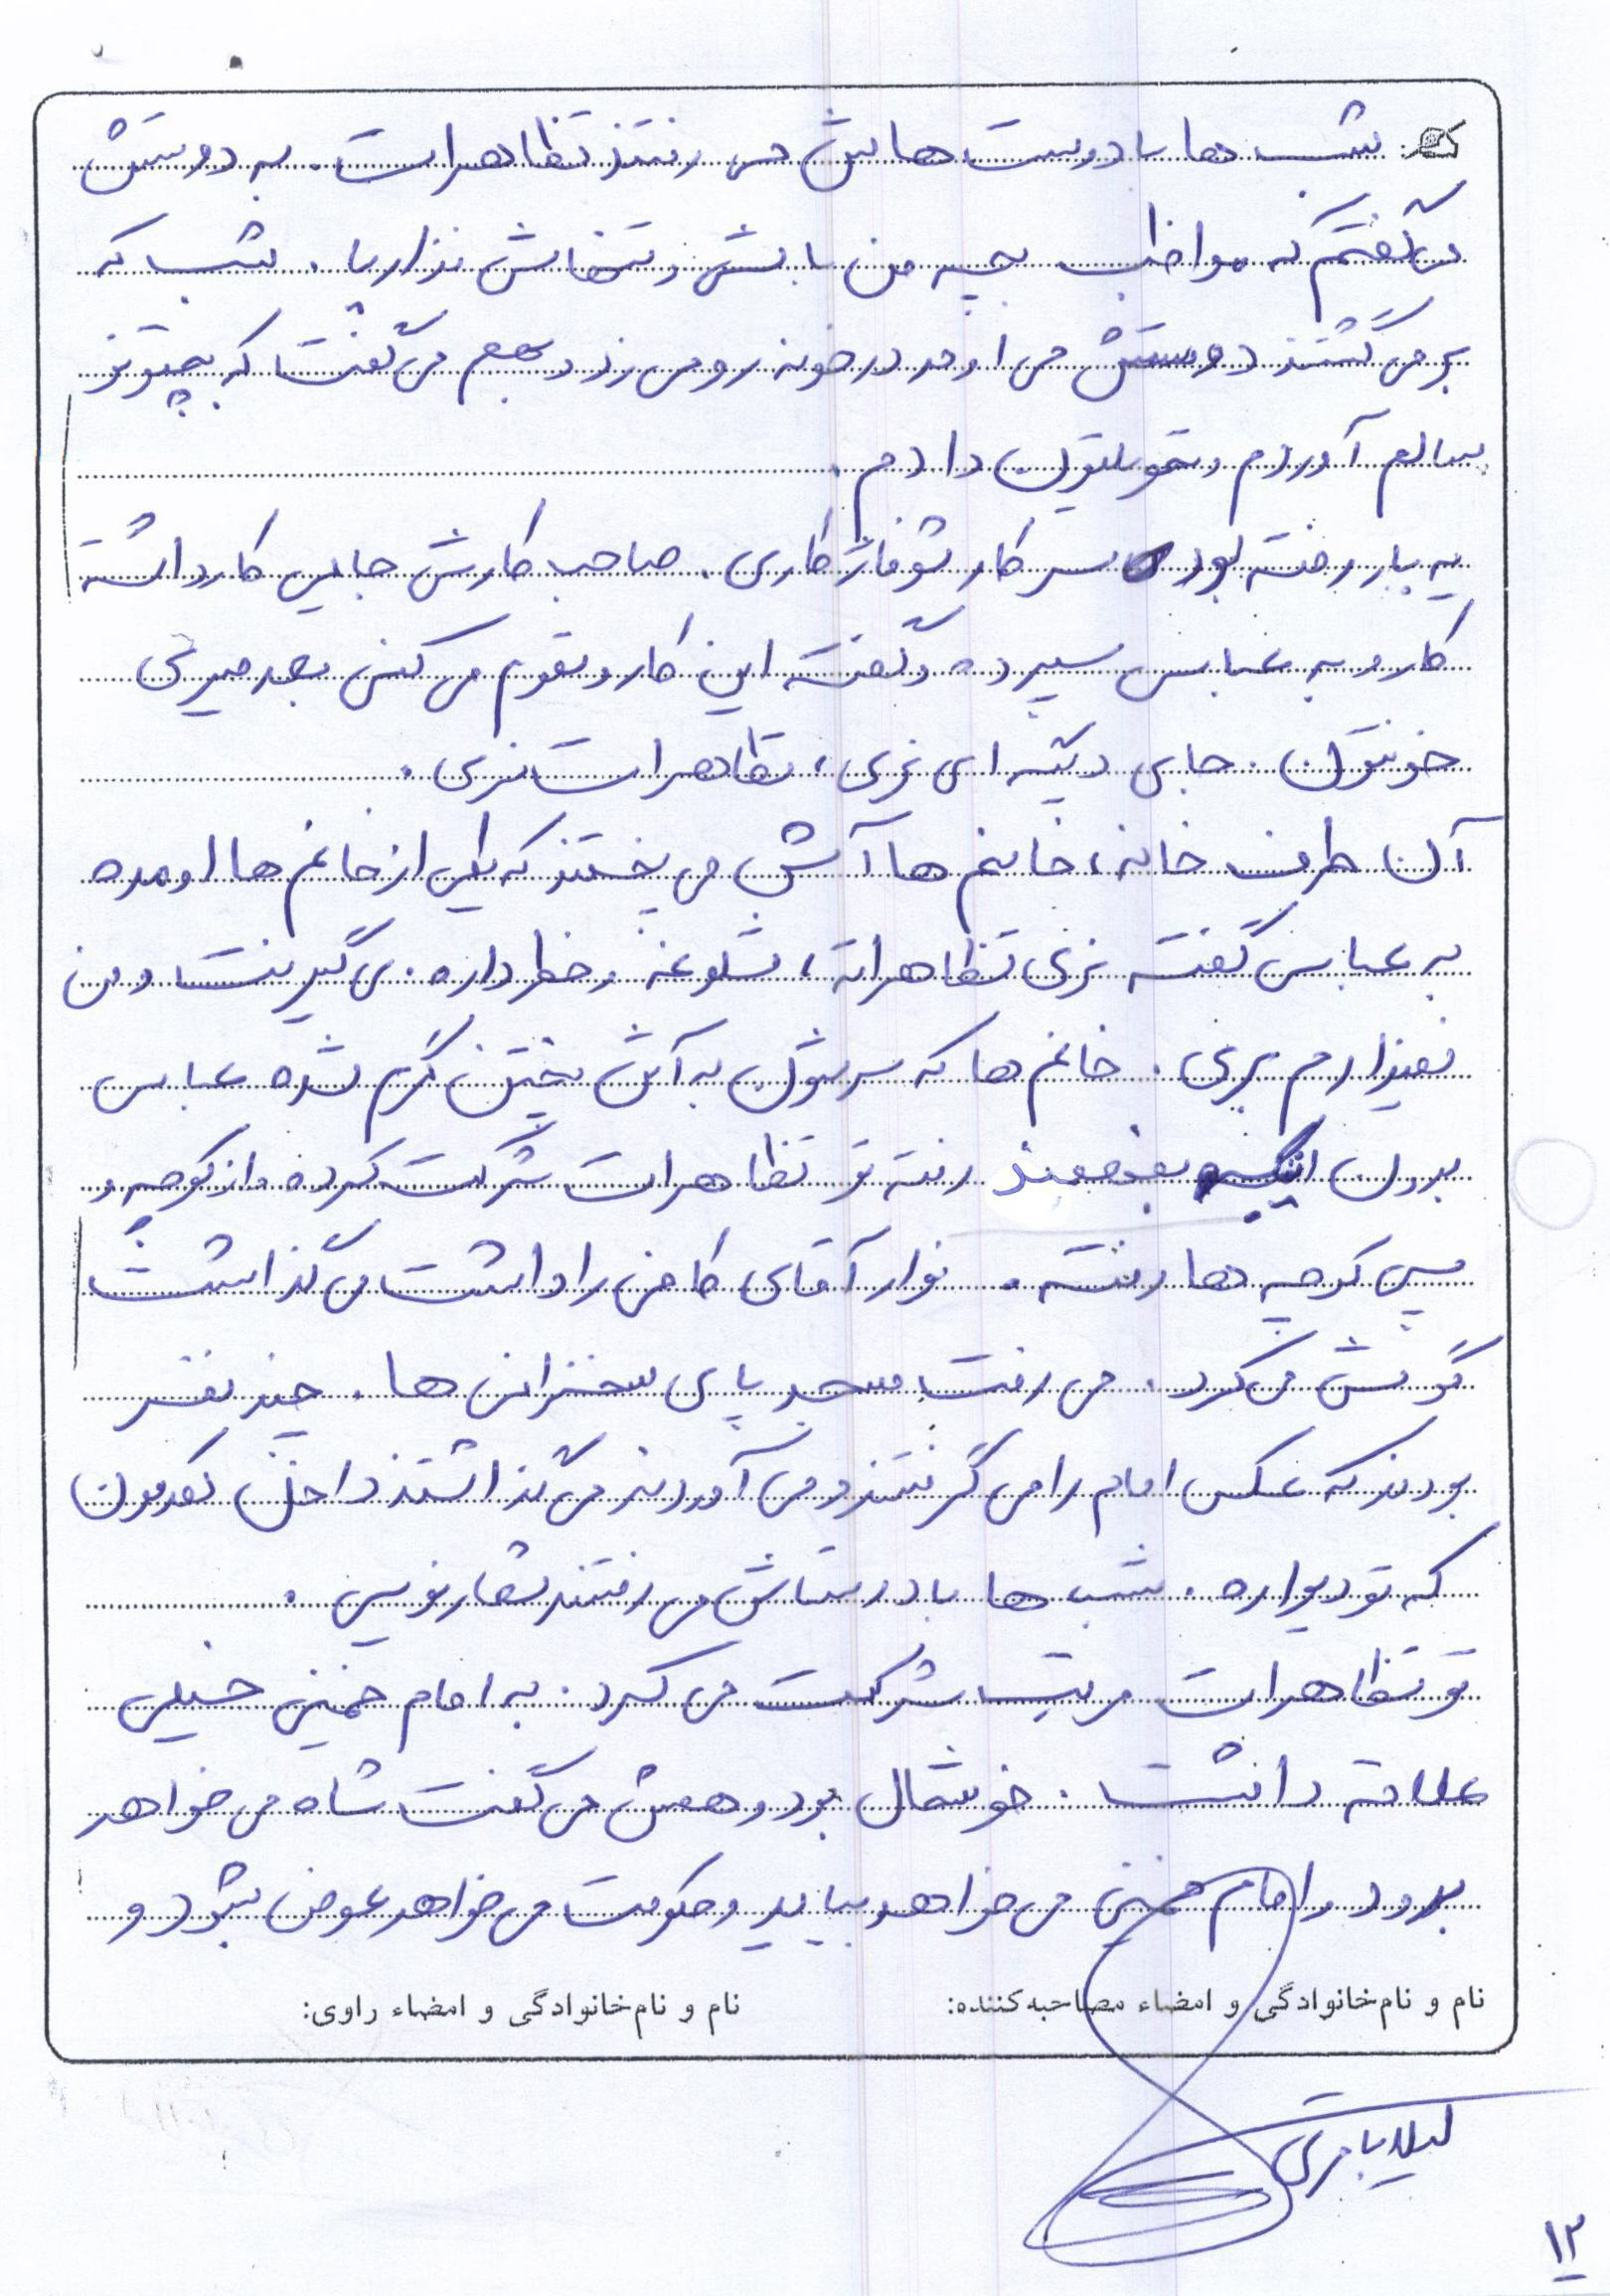 شب ها با دوست هایش می رفتند تظاهرات. به دوستش
می گفتم که مواظب بچه من باش و تنهاش نذاریا. شب که
بر می گشتند دوستش می اومد در خونه رو می زد و بهم می گفت که بچتونو
سالم آوردم و تحویلتون دادم.
یه بار رفته بود سر کار شوفاژ کاری. صاحب کارش جایی کار داشته
کار و به عباس سپرده و گفته این کار و تموم می کنی بعد میری
خونتون. جای دیگه ای نری، تظاهرات نری.
آن طرف خانه، خانم ها آش می پختند که یکی از خانم ها اومده
به عباس گفته نری تظاهراته، شلوغه و خطر داره. می گیرنت و من
نمیذارم بری. خانم ها که سرشون به آش پختن گرم شده عباس
بدون اینکه بفهمند رفته تو تظاهرات شرکت کرده و از کوچه و
پس کوچه ها رفته. نوار آقای کافی را داشت می گذاشت
گوش می کرد. می رفت مسجد پای سخنرانی ها. چند نفر
بودند که عکس امام را می گرفتند و می آوردند می گذاشتند داخل کمدمون
که تو دیواره. شب ها با دوستاش می رفتند شعار نویسی.
تو تظاهرات مرتب شرکت می کرد. به امام خمینی خیلی
علاقه داشت. خوشحال بود و همش می گفت شاه می خواهد
برود و امام خمینی می خواهد بیاید و حکومت می خواهد عوض بشود و
نام و نام‌خانوادگی و امضاء مصاحبه‌کننده: نام و نام‌خانوادگی و امضاء راوی:
لیلا باقری
۱۲